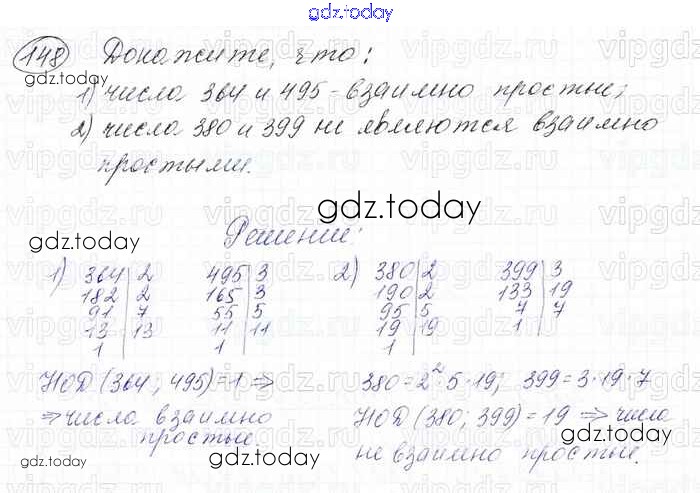 gdz.today
148 Докажите, что:
1) числа 364 и 495 - взаимно простые;
2) числа 380 и 399 не являются взаимно
простыми.
gdz.today
gdz.today
Решение:
1) 364 | 2   495 | 3   2) 380 | 2   399 | 3
182 | 2   165 | 3   190 | 2   133 | 19
91 | 7   55 | 5   95 | 5   7 | 7
13 | 13   11 | 11   19 | 19   1
1   1   1
НОД (364; 495) = 1 ⇒   380 = 2² · 5 · 19;   399 = 3 · 19 · 7
⇒ числа взаимно   НОД (380; 399) = 19 ⇒ числа
простые.   не взаимно простые.
gdz.today
gdz.today
gdz.today